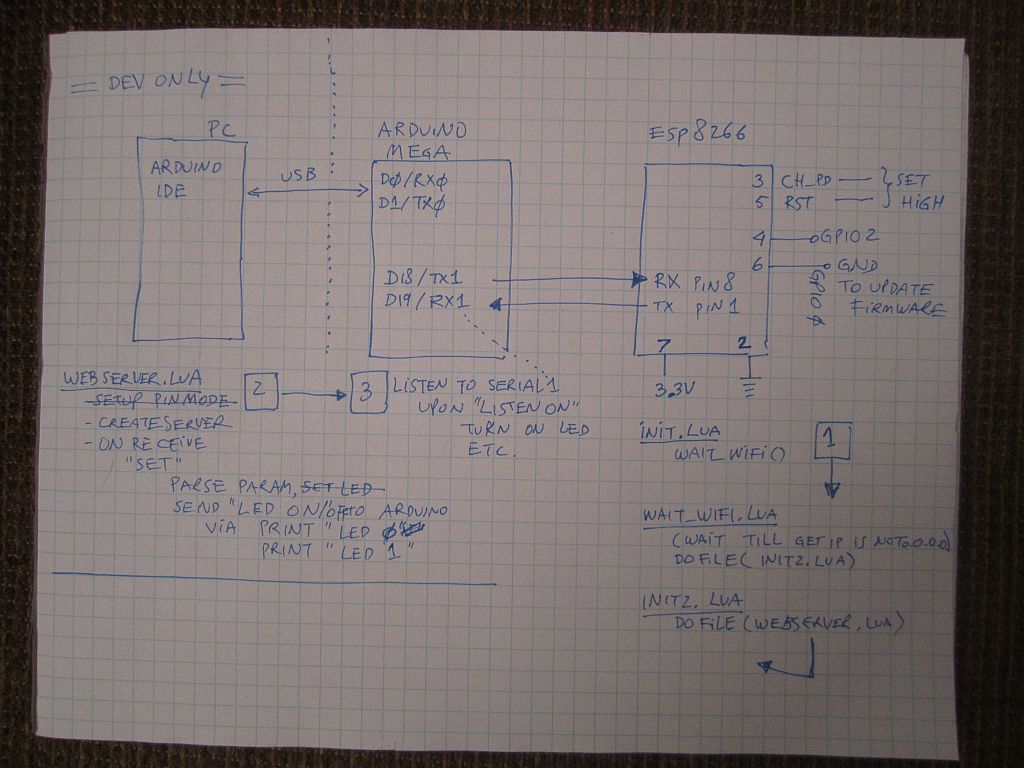 = DEV ONLY =
PC
ARDUINO
IDE
USB
ARDUINO
MEGA
DØ/RXØ
D1/TXØ
D18/TX1
D19/RX1
ESP8266
3 CH_PD
5 RST
SET
HIGH
4 GPIO2
6 GND
GPIOØ
TO UPDATE
FIRMWARE
RX PIN8
TX PIN1
7 2
3.3V
WEBSERVER.LUA
- SETUP PINMODE
- CREATESERVER
- ON RECEIVE
"SET"
PARSE PARAM, SET LED
SEND "LED ON/OFF TO ARDUINO
VIA PRINT "LED Ø"
PRINT "LED 1"
2
3
LISTEN TO SERIAL1
UPON "LISTEN ON"
TURN ON LED
ETC.
INIT.LUA
WAIT WIFI()
1
WAIT_WIFI.LUA
(WAIT TILL GET IP IS NOT 0.0.0.0)
DOFILE( INIT2.LUA)
INIT2.LUA
DOFILE (WEBSERVER.LUA)